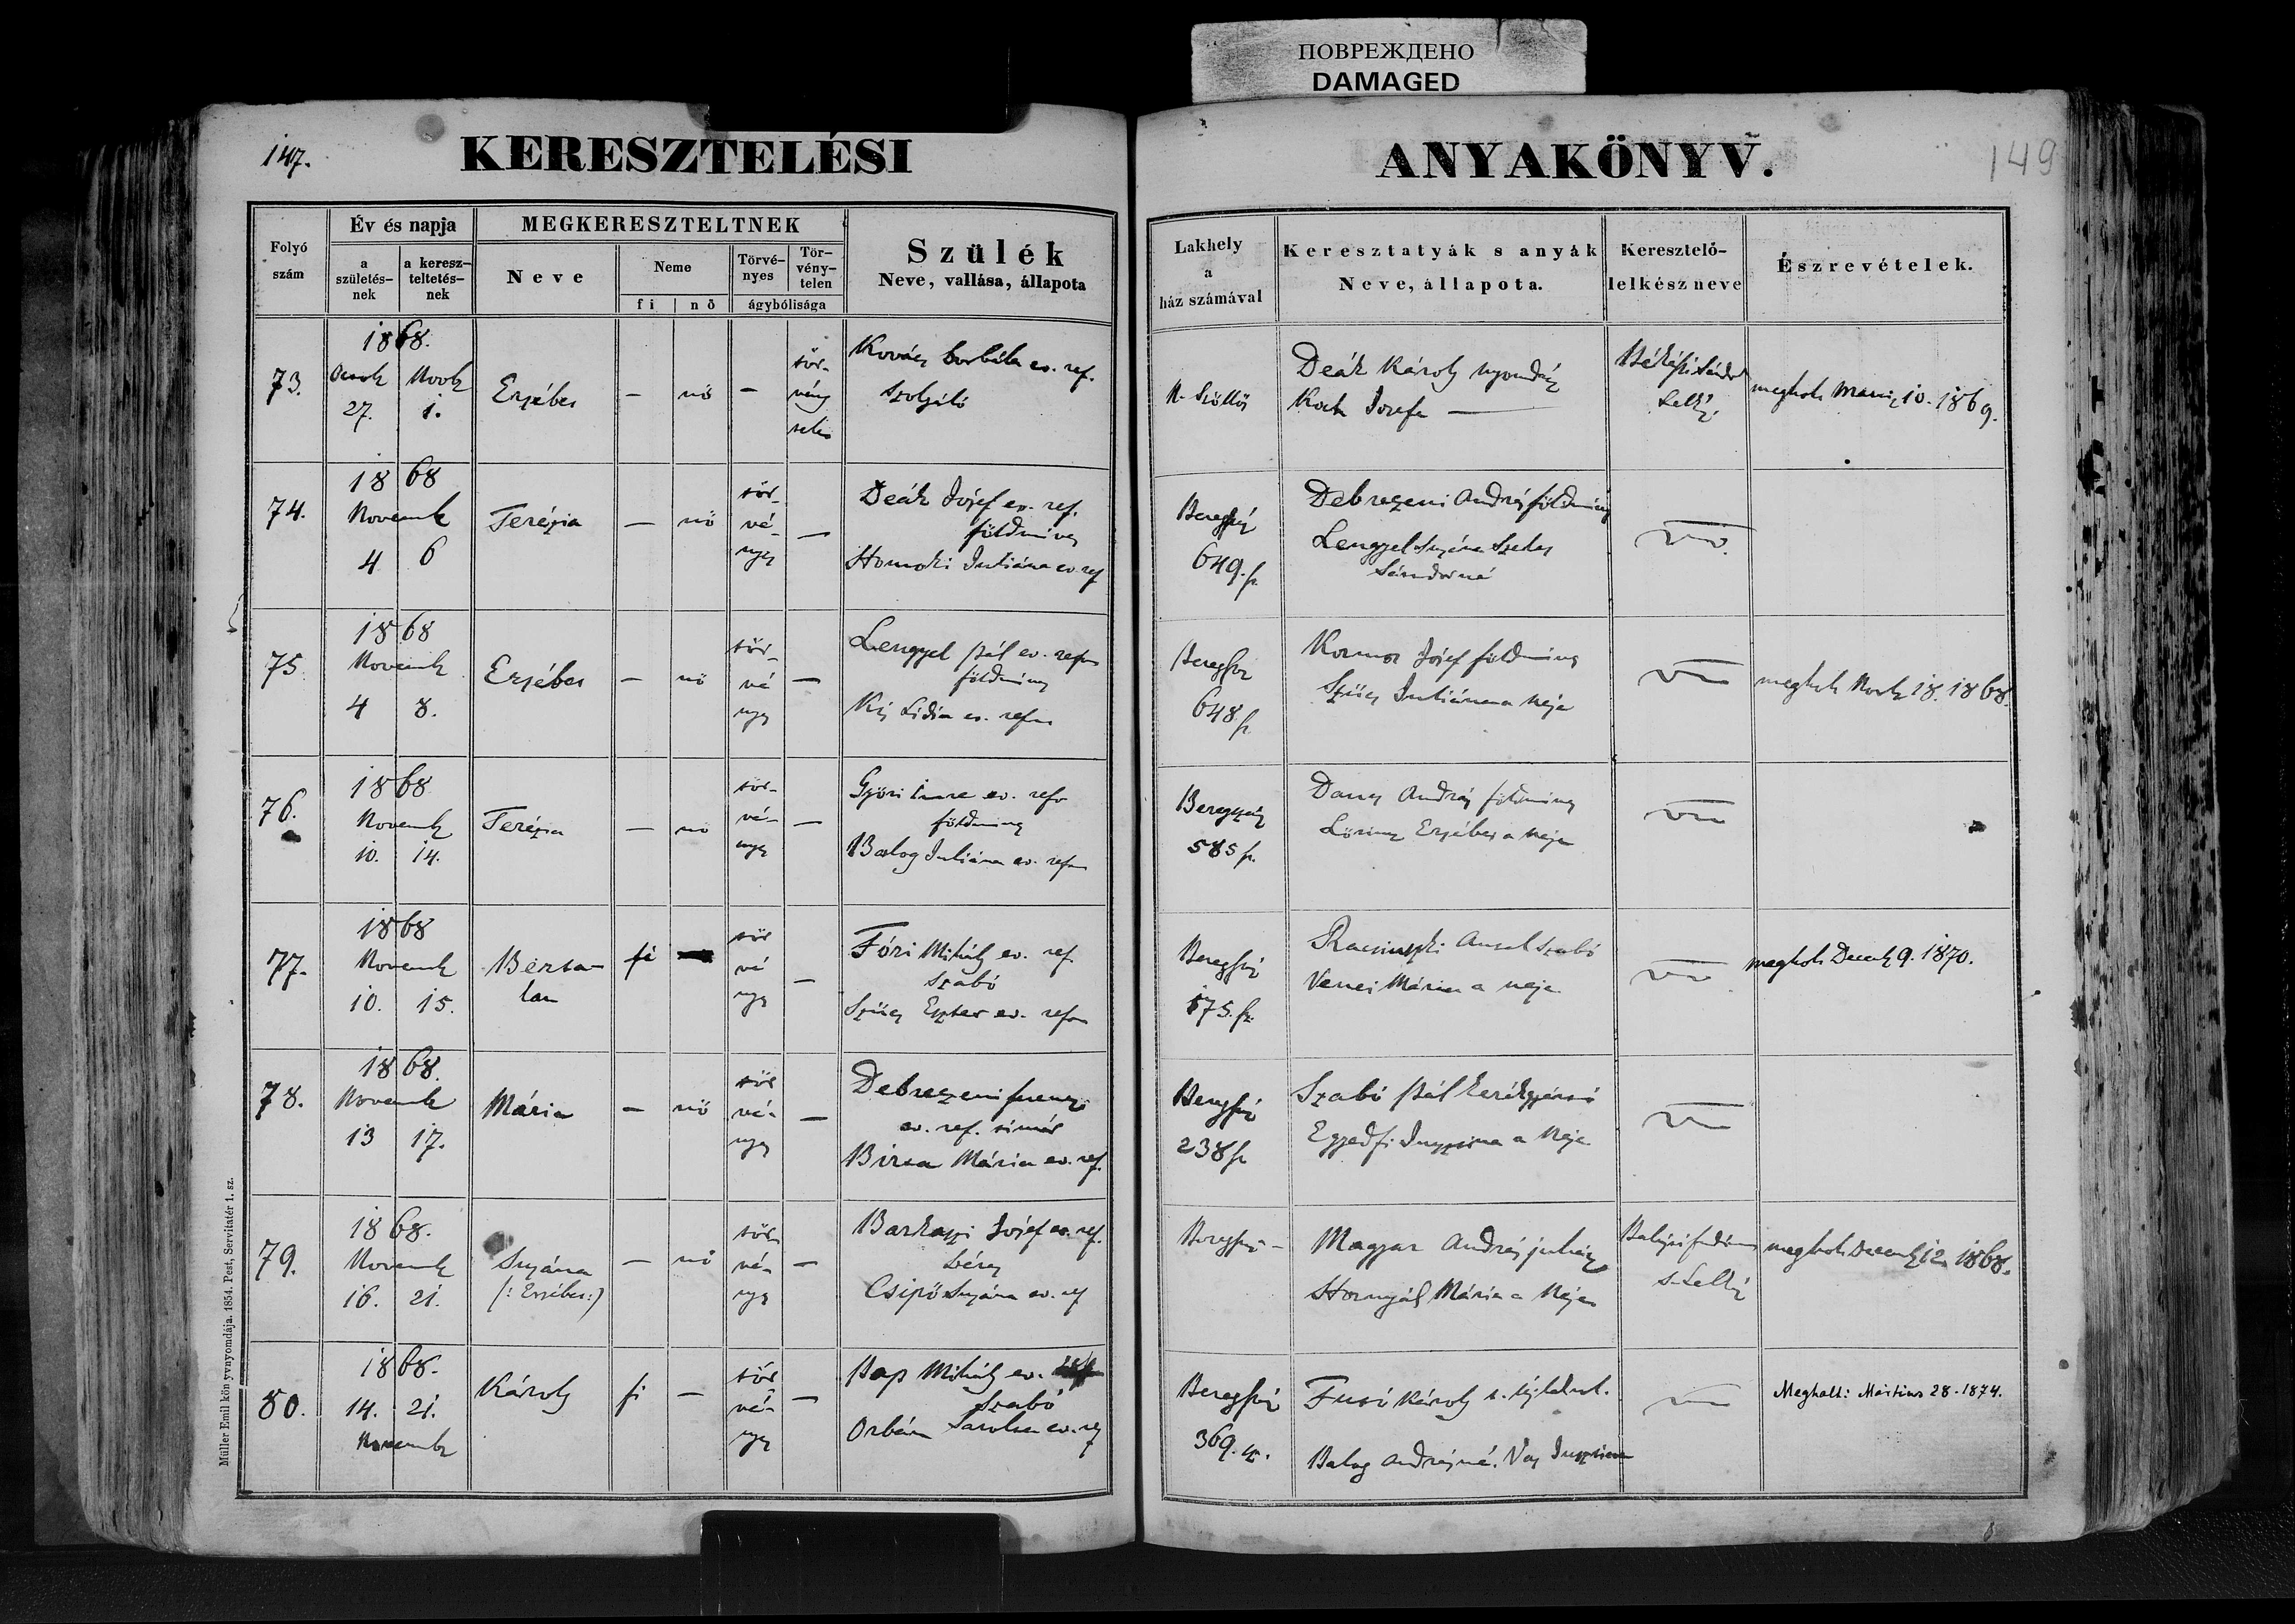 ПОВРЕЖДЕНО
DAMAGED
147.
KERESZTELÉSI
ANYAKÖNYV.
149
Folyó szám
Év és napja
a születés-nek
a keresz-teltetés-nek
MEGKERESZTELTNEK
Neve
Neme
fi
nő
Törvé-nyes
Tör-vény-telen
ágybólisága
Szülék
Neve, vallása, állapota
Lakhely
a
ház számával
Keresztatyák s anyák
Neve, állapota.
Keresztelő-
lelkész neve
Észrevételek.
73.
1868.
27. 1.
Erzsébet
—
nő
—
tör-
vény
telen
Kovács Borbála ev. ref.
szolgáló
N. Szőllős
Deák Károly nyomdász
Koch Jozefa —
Lelkész
megholt Marcz 10. 1869.
74.
1868
Novemb
4 6
Terézia
—
nő
tör-
vé-
nyes
—
Deák József ev. ref.
földmives
Homoki Juliána ev. ref
Beregszász
649. sz.
Debreczeni András földmives
Lengyel Suzána Szekes
Sándorné
75.
1868
Novemb
4 8.
Erzsébet
—
nő
tör-
vé
nyes
—
Lengyel Pál ev. refor
földmives
Kis Lidia ev. refor
Beregsz
648 sz.
Kormos József földmives
Szücs Juliánna a neje
megholt Novb 18. 1868.
76.
1868
Novemb
10. 14.
Terézia
—
nő
tör-
vé-
nyes
—
Györi Imre ev. refor
földmives
Balog Juliána ev. refor
Beregszász
585 sz.
Dancs András földmives
Lörincz Erzsébet a neje
77.
1868
Novemb
10. 15.
Berta-
lan
fi
tör
vé
nyes
—
Fóri Mihály ev. ref.
szabó
Szücs Eszter ev. refor
Beregszász
175. sz.
Racsinszki Antal szabó
Mária a neje
megholt Decemb 9. 1870.
78.
1868.
Novemb
13 17.
Mária
—
nő
tör
vé-
nyes
—
Debreczeni Ferencz
ev. ref. timár
Birta Mária ev. ref.
Beregszász
238 sz
Szabó Pál kerékgyártó
Egyedfi Zsuzsána a neje
79.
1868.
Novemb
16. 21.
Suzána
(: Erzsébet :)
—
nő
tör-
vé-
nyes
—
Barkaszi József ev. ref.
béres
Csipő Suzána ev. ref
Beregszász —
Magyar András juhász
Hornyák Mária a neje
s. Lelkész
megholt Decemb 12. 1868.
80.
1868.
14. 21.
Novemb
Károly
fi
—
tör
vé-
nyes
—
Pap Mihály ev.
szabó
Orbán Sarolta ev. ref
Beregszász
369. sz.
Fusó Károly
Balog Andrásné. Vas Zsuzsána
Meghalt: Mártius 28. 1874.
Müller Emil könyvnyomdája. 1854. Pest, Servitatér 1. sz.